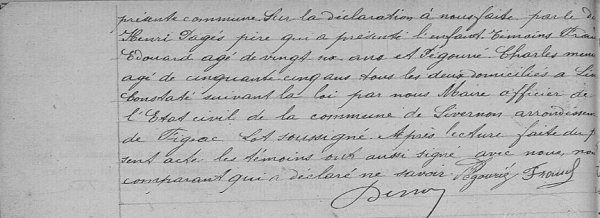 présente commune. Sur la déclaration à nous faite par le d
Henri Pagès père qui a présenté l'enfant. Témoins
Edouard agé de vingt ans et Pégourié Charles
agé de cinquante cinq ans tous les deux domiciliés a Liv
Constaté suivant la loi par nous Maire officier de
l'Etat civil de la commune de Livernon arrondissem
de Figeac Lot soussigné. Après lecture faite du p
sent acte les témoins ont aussi signé avec nous, no
comparant qui a déclaré ne savoir Pégourié